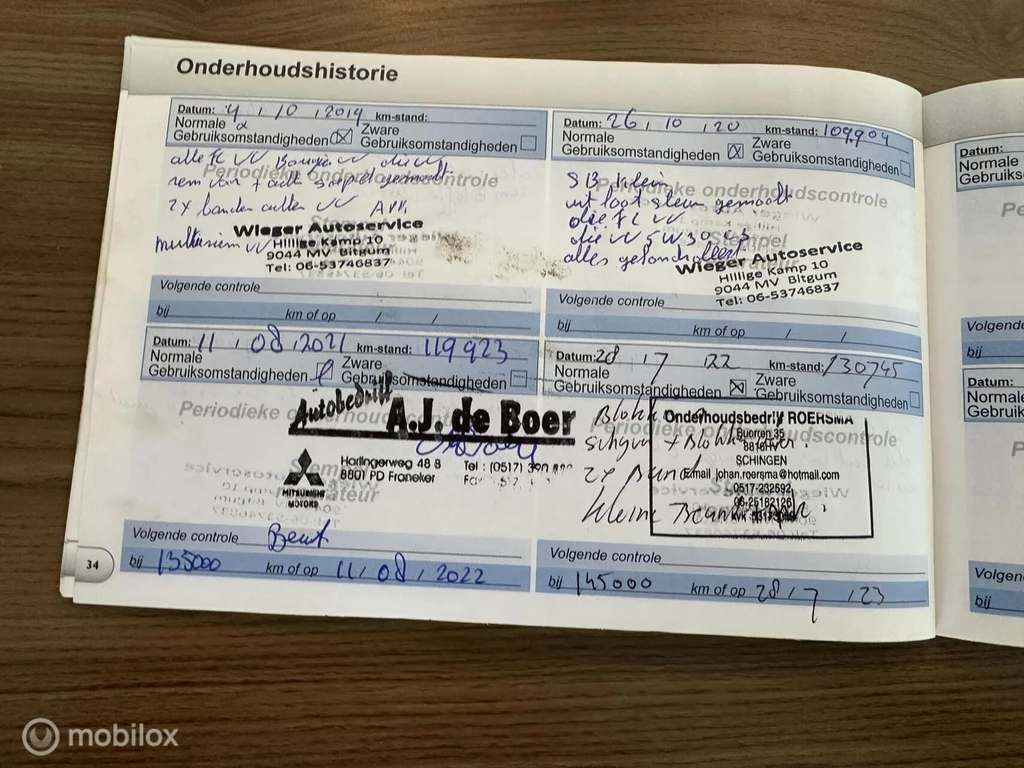 Onderhoudshistorie
Datum: 4 , 10 , 2019 km-stand:
Normale
Gebruiksomstandigheden Zware
Gebruiksomstandigheden
alle fc VV
Periodieke onderhoudscontrole
rem voor + achter gemaakt
2x banden achter VV APK
multiriem VV
Wieger Autoservice
Hillige Kamp 10
9044 MV Bitgum
Tel: 06-53746837
Volgende controle
bij km of op / /
Datum: 26 , 10 , 20 km-stand: 109904
Normale
Gebruiksomstandigheden Zware
Gebruiksomstandigheden
Periodieke onderhoudscontrole
SB klein
uit laat gemaakt
olie fc VV
olie VV 5W30 C3
Stempel
alles gecontroleert
Wieger Autoservice
Hillige Kamp 10
9044 MV Bitgum
Tel: 06-53746837
Volgende controle
bij km of op / /
Datum: 11 , 08 , 2021 km-stand: 119923
Normale
Gebruiksomstandigheden Zware
Gebruiksomstandigheden
Periodieke
Autobedrijf A.J. de Boer
Harlingerweg 48 8
8801 PD Franeker
Tel : (0517)
MITSUBISHI
MOTORS
Volgende controle Beurt
bij 135000 km of op 11 / 08 / 2022
Datum: 28 , 7 22 km-stand: 130745
Normale
Gebruiksomstandigheden Zware
Gebruiksomstandigheden
Onderhoudsbedrijf ROERSMA
Buorren 35
8816HV
SCHINGEN
Email johan.roersma@hotmail.com
0517-232592
06-25182126
kleine
Volgende controle
bij 145000 km of op 28 / 7 / 23
34
Datum:
Normale
Gebruiksom
Volgende
bij
Datum:
Normale
Gebruiksom
Volgen
bij
mobilox